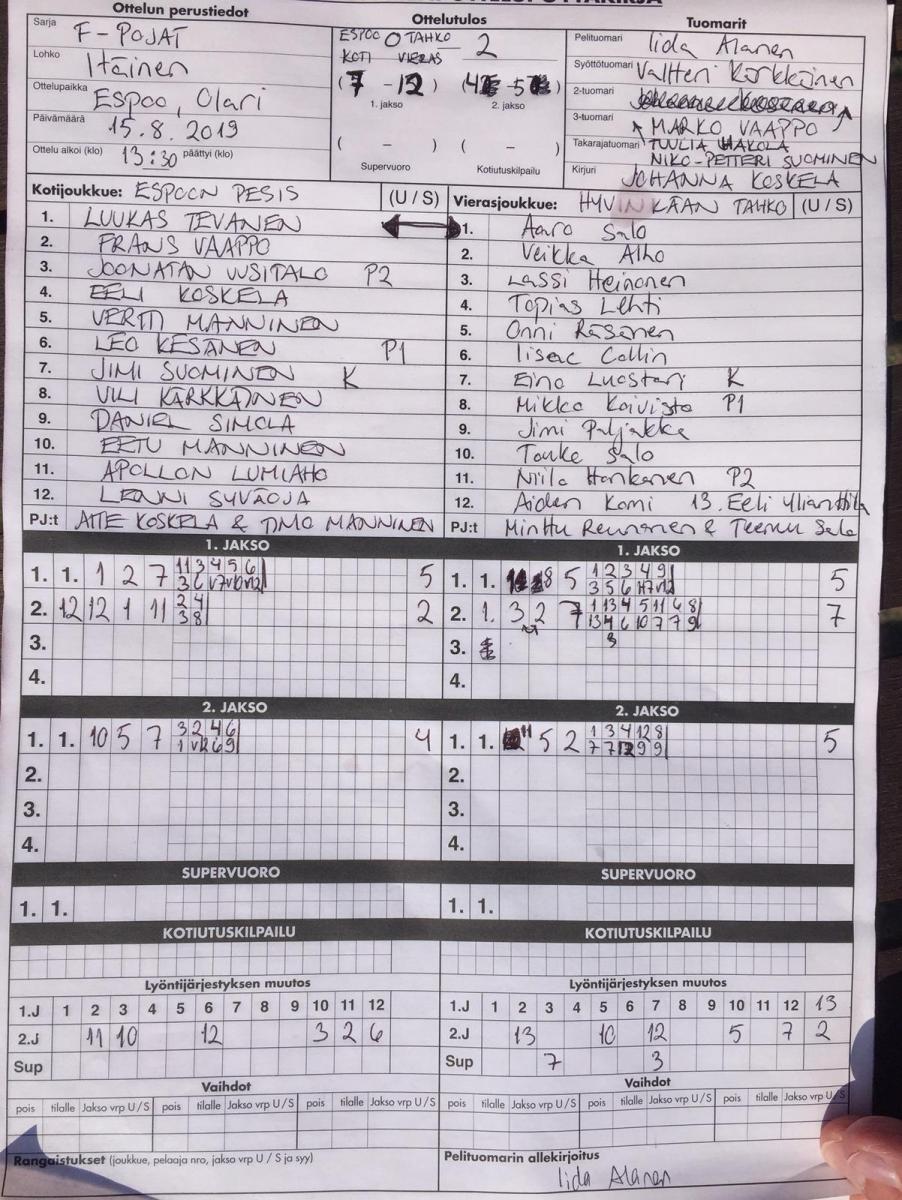 Ottelun perustiedot
Sarja F-POJAT
Lohko Itäinen
Ottelupaikka ESPOO, Olari
Päivämäärä 15.8.2019
Ottelu alkoi (klo) 13:30 päättyi (klo)
Ottelutulos
ESPOO 0 TAHKO 2
KOTI VIERAS
(7 - 12) (4 - 5)
1. jakso 2. jakso
( - ) ( - )
Supervuoro Kotiutuskilpailu
Tuomarit
Pelituomari Iida Alanen
Syöttötuomari Valtteri Kärkkäinen
2-tuomari
3-tuomari MARKO VAAPPO
Takarajatuomari TUULIA HAKOLA
NIKO-PETTERI SUOMINEN
Kirjuri JOHANNA KOSKELA
Kotijoukkue: ESPOON PESIS (U / S)
1. LUUKAS TEVANEN
2. FRANS VAAPPO
3. JOONATAN UUSITALO P2
4. EELI KOSKELA
5. VERTTI MANNINEN
6. LEO KESÄNEN P1
7. JIMI SUOMINEN K
8. VILI KÄRKKÄINEN
9. DANIEL SIMOLA
10. EETU MANNINEN
11. APOLLON LUMIAHO
12. LENNI SYVÄOJA
PJ:t ATTE KOSKELA & TIMO MANNINEN
Vierasjoukkue: HYVINKÄÄN TAHKO (U / S)
1. Aaro Salo
2. Veikka Alho
3. Lassi Heinonen
4. Topias Lehti
5. Onni Räsänen
6. Iisac Collin
7. Eino Luostari K
8. Mikko Koivisto P1
9. Jimi Paljakka
10. Touko Salo
11. Niilo Honkanen P2
12. Aiden Komi 13. Eeli Ylianttila
PJ:t Minttu Reunanen & Teemu Salo
1. JAKSO
1. 1. 1 2 7 11 3 4 5 6 5
3 6 V7 V10 V12
2. 12 12 1 11 2 4 2
3 8
3.
4.
1. JAKSO
1. 1. 8 5 1 2 3 4 9 5
3 5 6 H7 V12
2. 1. 3 2 7 1 13 4 5 11 6 8 7
13 4 6 10 7 7 9
3. 3
4.
2. JAKSO
1. 1. 10 5 7 3 2 4 6 4
1 V12 6 9
2.
3.
4.
2. JAKSO
1. 1. 11 5 2 1 3 4 12 8 5
7 7 12 9 9
2.
3.
4.
SUPERVUORO
1. 1.
SUPERVUORO
1. 1.
KOTIUTUSKILPAILU
KOTIUTUSKILPAILU
Lyöntijärjestyksen muutos
1.J 1 2 3 4 5 6 7 8 9 10 11 12
2.J 11 10 12 3 2 6
Sup
Lyöntijärjestyksen muutos
1.J 1 2 3 4 5 6 7 8 9 10 11 12 13
2.J 13 10 12 5 7 2
Sup 7 3
Vaihdot
pois tilalle Jakso vrp U / S pois tilalle Jakso vrp U / S pois tilalle Jakso vrp U / S
Vaihdot
pois tilalle Jakso vrp U / S pois tilalle Jakso vrp U / S pois tilalle Jakso vrp U / S
Rangaistukset (joukkue, pelaaja nro, jakso vrp U / S ja syy)
Pelituomarin allekirjoitus
Iida Alanen